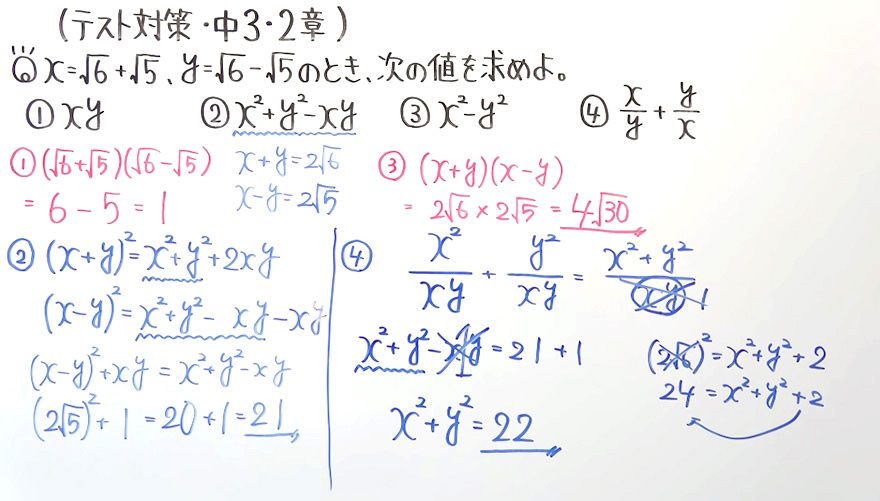 (テスト対策・中3・2章)
x=√6+√5、y=√6-√5のとき、次の値を求めよ。
① xy ② x²+y²-xy ③ x²-y² ④ x/y + y/x
① (√6+√5)(√6-√5)
= 6-5=1
x+y=2√6
x-y=2√5
③ (x+y)(x-y)
= 2√6×2√5=4√30
② (x+y)²=x²+y²+2xy
(x-y)²=x²+y²-xy-xy
(x-y)²+xy=x²+y²-xy
(2√5)²+1=20+1=21
④ x²/xy + y²/xy = x²+y²/xy 1
x²+y²-xy=21+1
1
x²+y²=22
(2√6)²=x²+y²+2
24=x²+y²+2